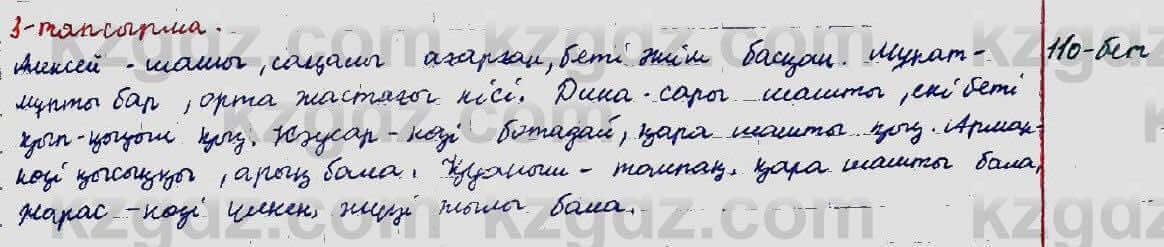 3-тапсырма.
Алексей - шашы, сақалы ағарған, беті әжім басқан. Мұрат-
мұрты бар, орта жастағы кісі. Дина - сары шашты, екі беті
қып-қызыл қыз. Кәусар - көзі ботадай, қара шашты қыз. Арман-
көзі қысыңқы, арық бала. Қуаныш - толпақ, қара шашты бала,
Жарас - көзі үлкен, жүзі жылы бала.
110-бет